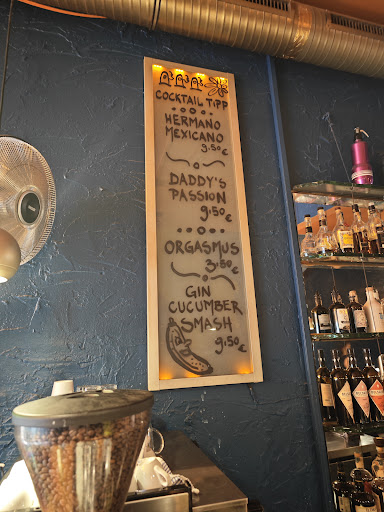 COCKTAIL TIPP
HERMANO
MEXICANO
9.50€
DADDY'S
PASSION
9.50€
ORGASMUS
3.50€
GIN
CUCUMBER
SMASH
9.50€